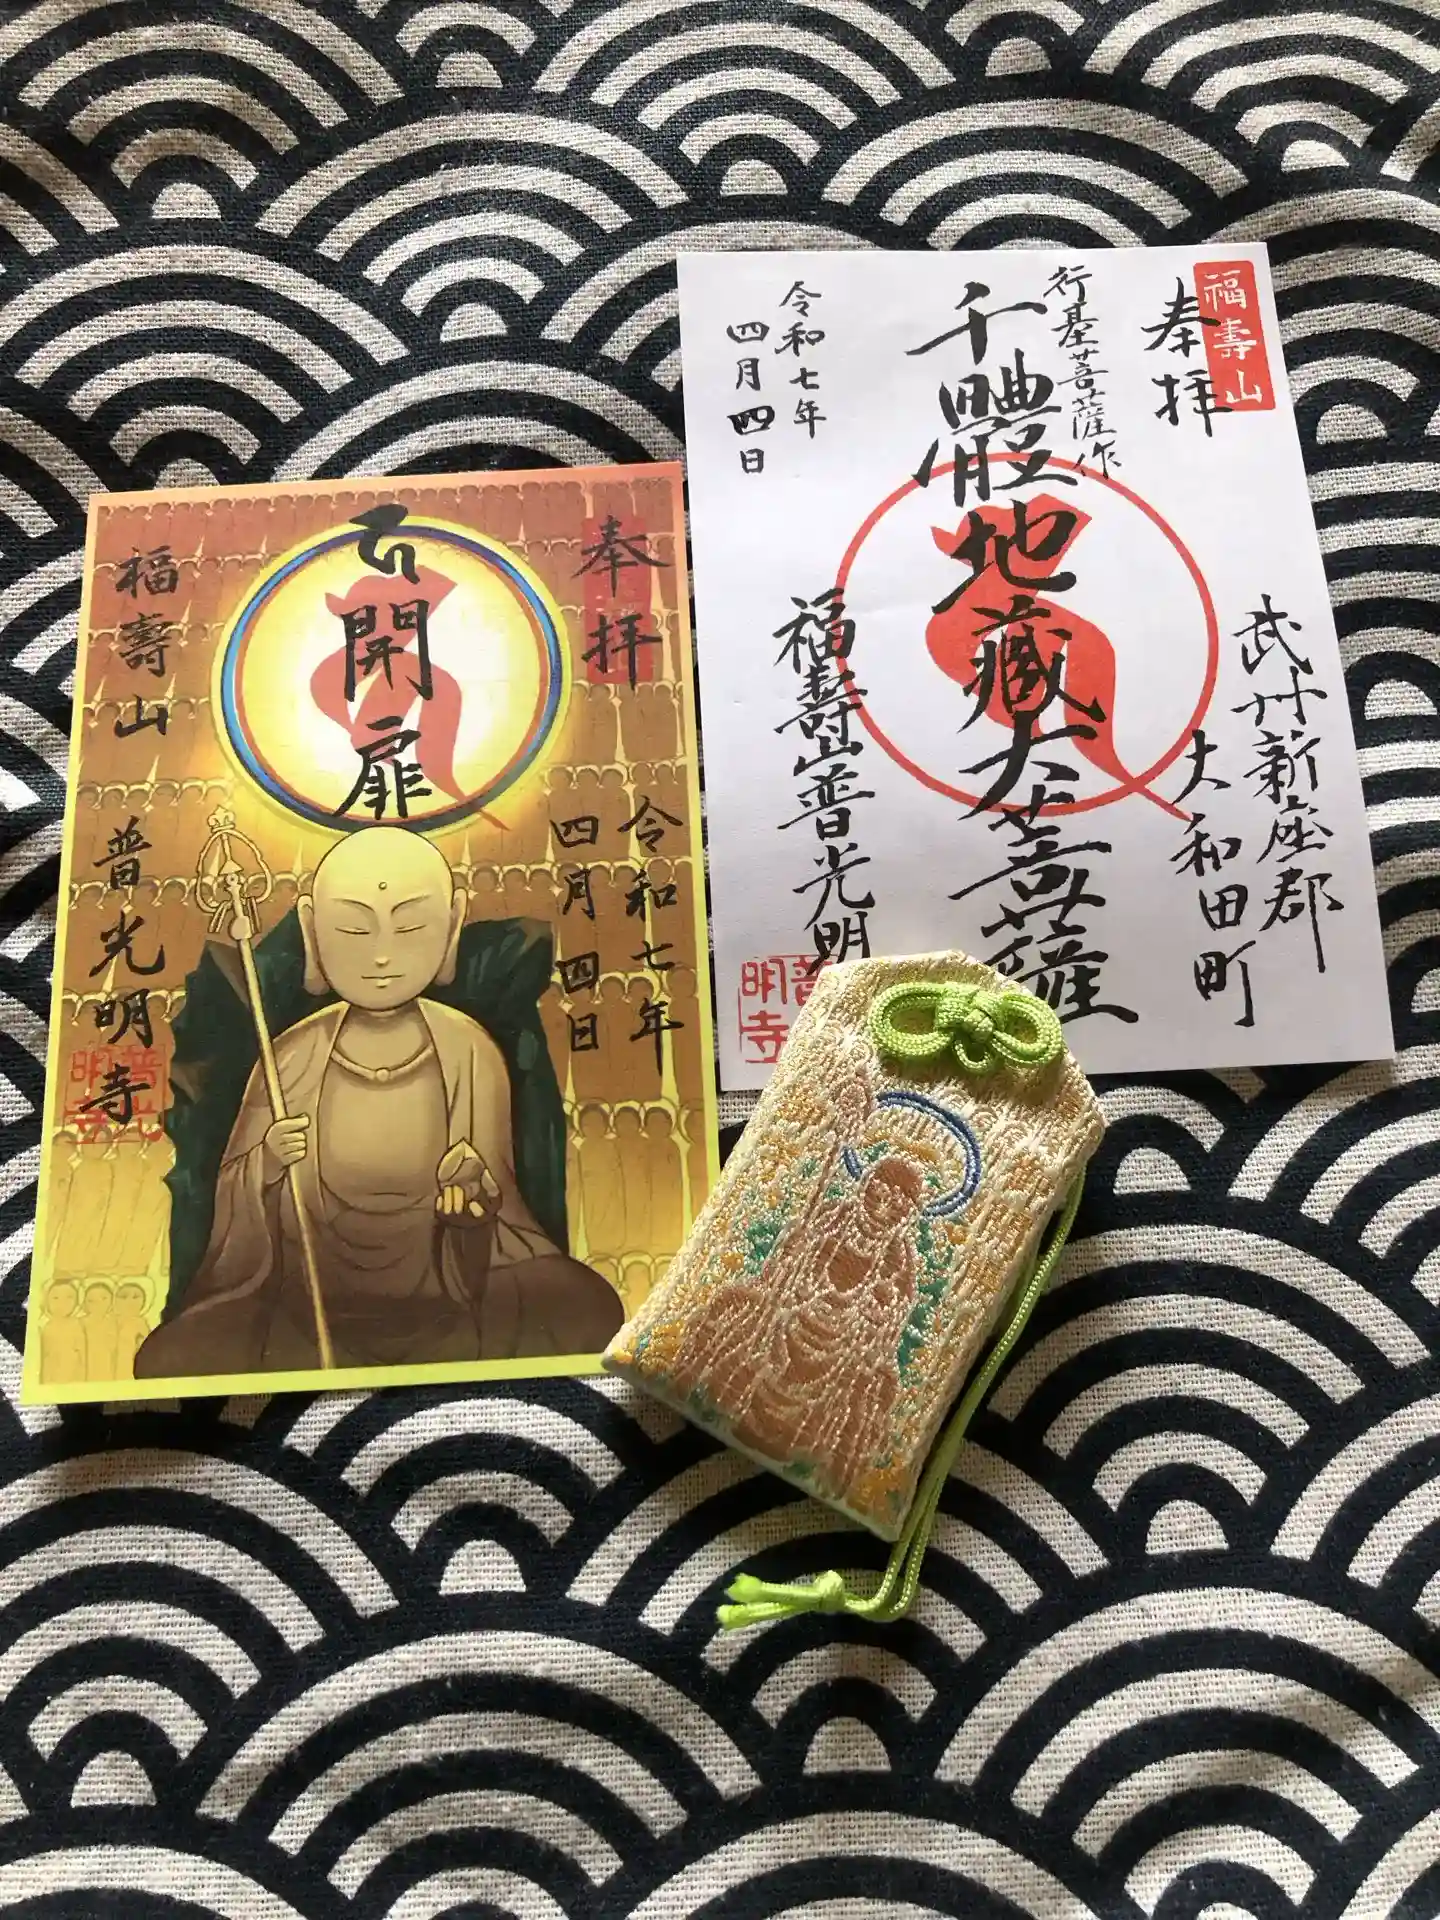 奉拝
御開扉
令和七年
四月四日
福壽山
普光明寺
福壽山
奉拝
行基菩薩作
千體地藏大菩薩
令和七年
四月四日
武州新座郡
大和田町
福壽山普光明